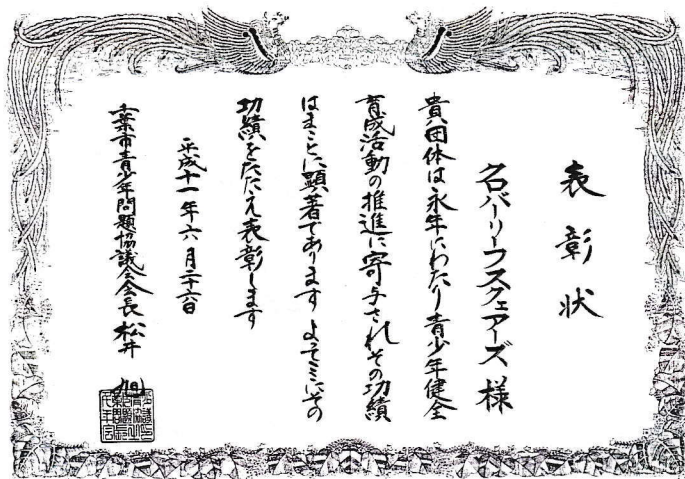 表彰状
クローバーリーフスクェアーズ様
貴団体は永年にわたり青少年健全
育成活動の推進に寄与されその功績
はまことに顕著であります よってここにその
功績をたたえ表彰します
平成十一年六月二十六日
千葉市青少年問題協議会会長 松井 旭